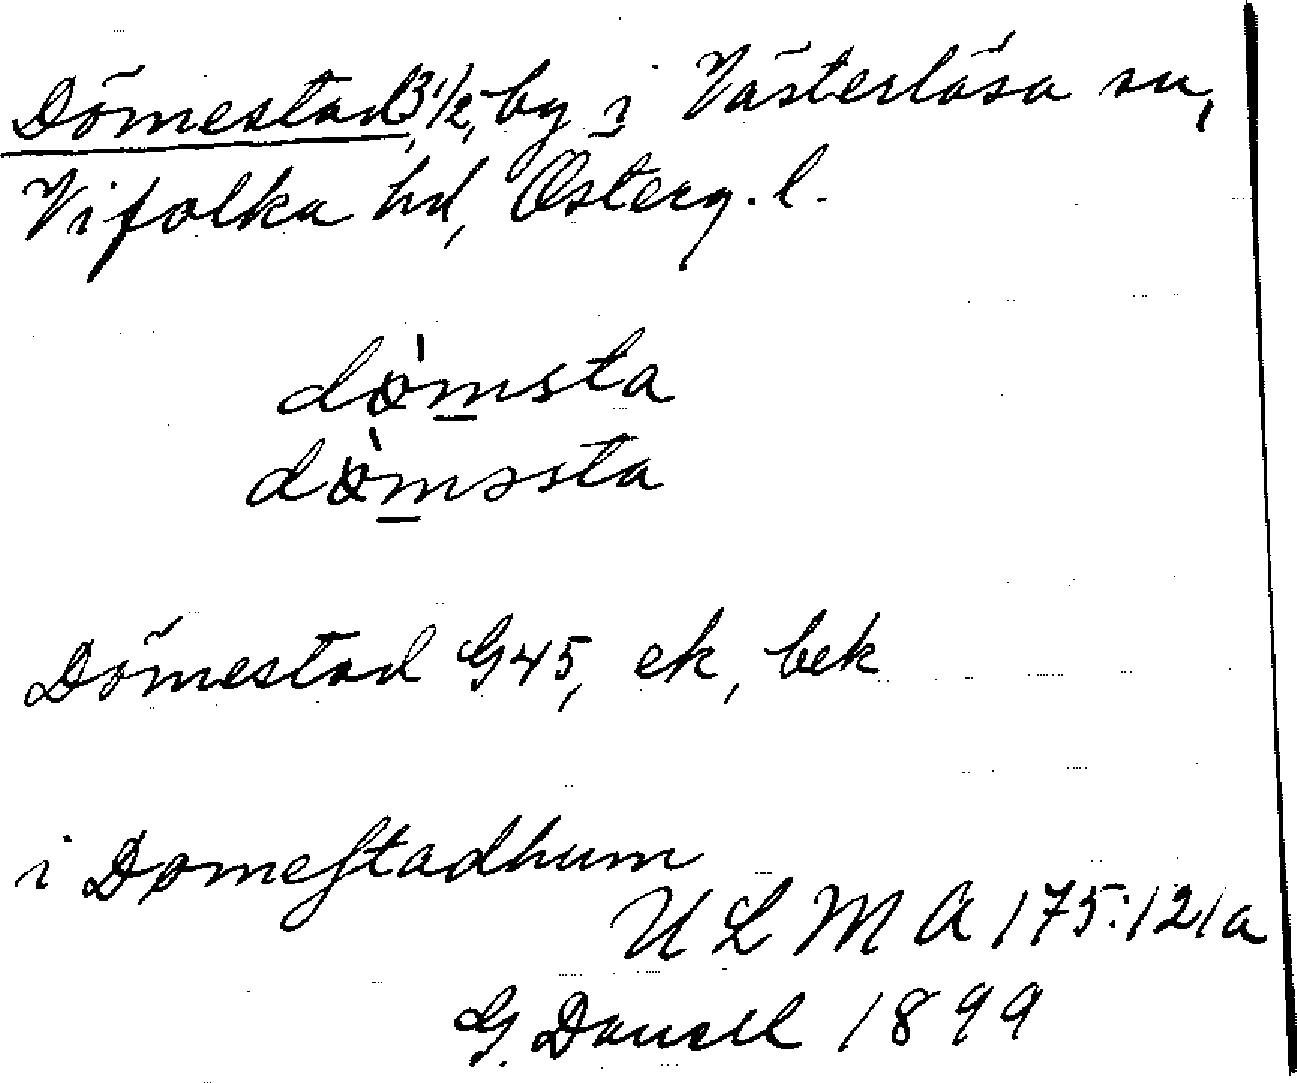 Dömestad, 3 1/2, by i Västerlösa sn,
Vifolka hd, Österg. l.
dø̀msta
dø̀məsta
Dömestad G45, ek, bek
i Dømeſtadhum
ULMA 175:121a
G. Danell 1899